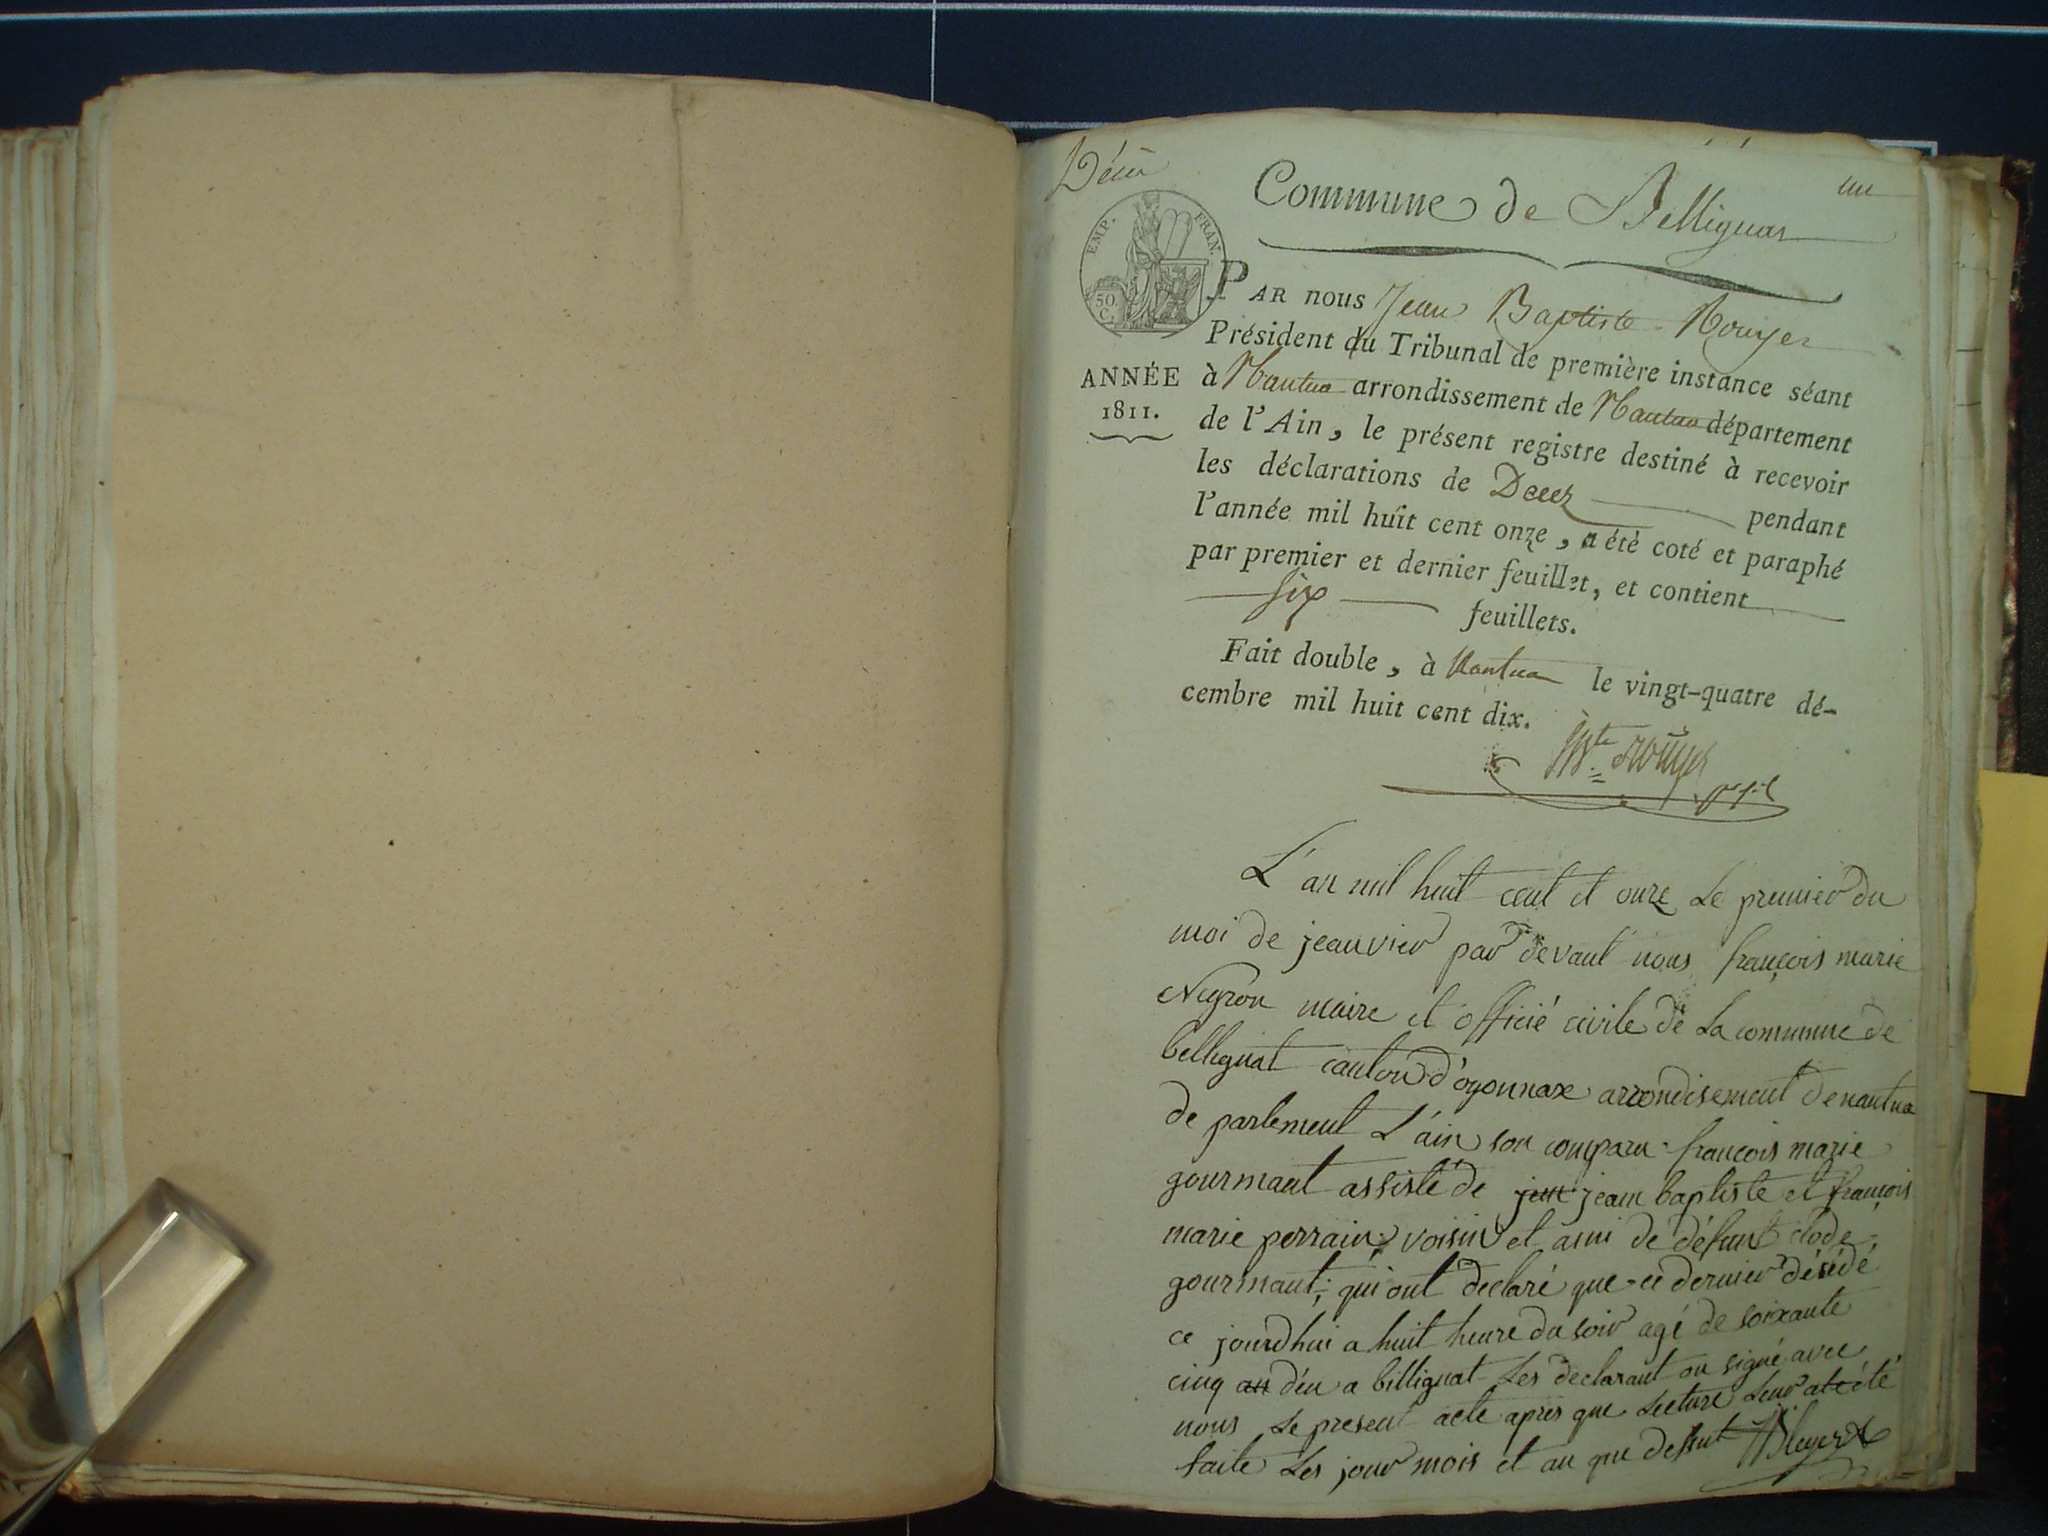 Décès
un
Commune de Bellignat
EMP. FRAN.
50.
C.
ANNÉE
1811.
PAR nous Jean Baptiste Rouyer
Président du Tribunal de première instance séant
à Nantua arrondissement de Nantua département
de l'Ain, le présent registre destiné à recevoir
les déclarations de Décès pendant
l'année mil huit cent onze, a été coté et paraphé
par premier et dernier feuillet, et contient
six feuillets.
Fait double, à Nantua le vingt-quatre dé-
cembre mil huit cent dix.
Bte Rouyer
L'an mil huit cent et onze Le premier du
moi de jeanvier par devant nous françois marie
Neyron maire et officié civile de La commune de
bellignat canton d'oyonnax arrondisement de nantua
de partement L'ain son comparu françois marie
gourmant assisté de jean jeam baptiste et françois
marie perrain voisin et ami de défunt clode
gourmant; qui ont declaré que ce dernier désédé
ce jourdhui a huit heure du soir agé de soixante
cinq an déu a bellignat Les declarant on signé avec
nous Le present acte apres que Lecture Leur at été
faite Les jour mois et an que dessut